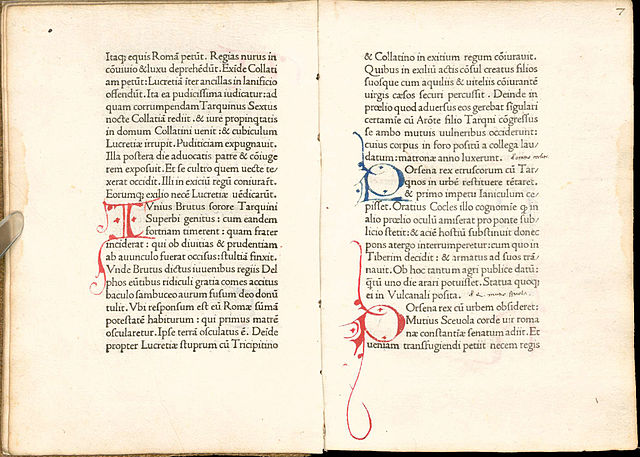 Itaq; equis Romā petūt. Regias nurus in
cōuiuio &luxu deprehēdūt. Exide Collati
am petūt: Lucretiā iter ancillas in lanificio
offendūt. Ita ea pudicissima iudicatur: ad
quam corrumpendam Tarquinus Sextus
nocte Collatiā rediit. & iure propinqtatis
in domum Collatini uenit: & cubiculum
Lucretiæ irrupit. Pudiciciam expugnauit.
Illa postera die aduocatis patre & cōiuge
rem exposuit. Et se cultro quem ueste te/
xerat occidit. Illi in exiciū regū coniurāst.
Eorumq; exilio necē Lucretiæ uēdicarūt.
IVnius Brutus sorore Tarquini
Superbi genitus: cum eandem
fortnam timerent: quam frater
inciderat: qui ob diuitias & prudentiam
ab auunculo fuerat occisus: stultiā finxit.
Vnde Brutus dictus iuuenibus regiis Del
phos eūtibus ridiculi gratia comes accitus
baculo sambuceo aurum fusum deo donū
tulit. Vbi responsum est eū Romæ sūmā
potestatē habiturum: qui primus matrē
oscularetur. Ipse terrā osculatus ē. Deide
propter Lucretiæ stuprum cū Tricipitino
7
& Collatino in exitium regum cōiurauit.
Quibus in exiliū actis cōsul creatus filios
suosque cum aquiliis & uitelliis cōiurantē
uirgis cæsos securi percussit. Deinde in
prœlio quod aduersus eos gerebat sigulari
certamīe cū Arōte filio Tarqni cōgressus
se ambo mutuis uulneribus occiderunt:
cuius corpus in foro positū a collega lau/
datum: matronæ anno luxerunt.
POrsena rex etruscorum cū Tar/
qnos in urbē restituere tētaret.
& primo impetu Ianiculum ce/
pisset. Oratius Cocles illo cognomie q in
alio prœlio oculū amiserat pro ponte sub/
licio stetit: & aciē hostiū substinuit donec
pons atergo interrumperetur: cum quo in
Tiberim decidit: & armatus ad suos trā/
nauit. Ob hoc tantum agri publice datū:
qtū uno die arari potuisset. Statua quoq;
ei in Vulcanali posita.
POrsena rex cū urbem obsideret:
Mutius Sceuola corde uir roma
næ constantiæ senatum adiit. Et
ueniam transfugiendi petiit necem regis